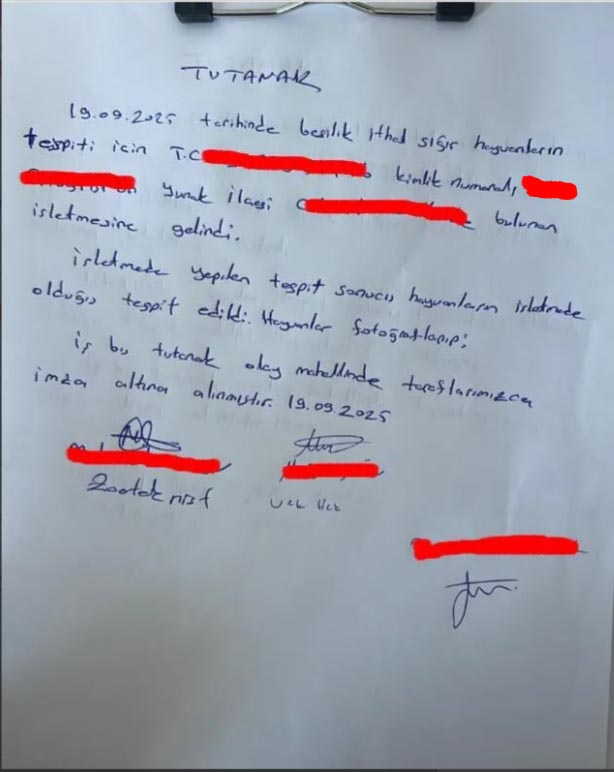 TUTANAK
19.09.2025 tarihinde besilik ithal sığır hayvanların
tespiti için T.C kimlik numaralı,
Yunak ilçesi bulunan
işletmesine gelindi.
işletmede yapılan tespit sonucu hayvanların işletmede
olduğu tespit edildi. Hayvanlar fotoğraflanıp;
iş bu tutanak olay mahallinde taraflarımızca
imza altına alınmıştır. 19.09.2025
Zooteknist
Vet. Hek